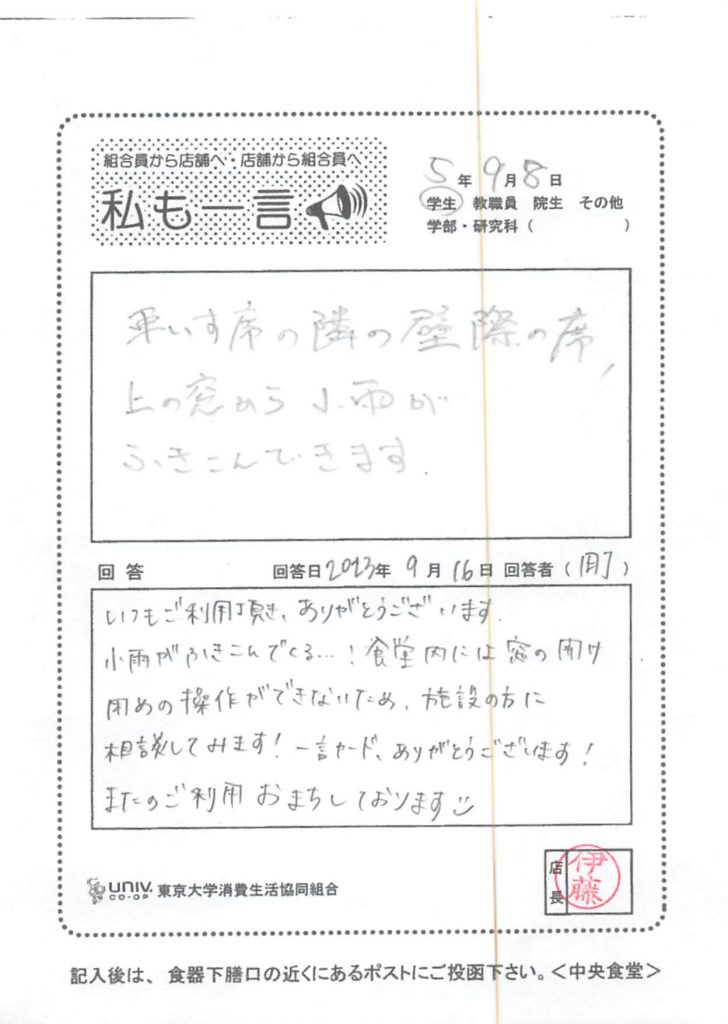 組合員から店舗へ・店舗から組合員へ
私も一言
5年9月8日
学生 教職員 院生 その他
学部・研究科( )
車いす席の隣の壁際の席,
上の窓から小雨が
ふきこんできます.
回答 回答日2023年9月16日 回答者( )
いつもご利用頂き、ありがとうございます.
小雨がふきこんでくる…!食堂内には窓の開け
閉めの操作ができないため、施設の方に
相談してみます!一言カード、ありがとうございます!
またのご利用おまちしております
UNIV. CO-OP 東京大学消費生活協同組合
店長 伊藤
記入後は、食器下膳口の近くにあるポストにご投函下さい。<中央食堂>